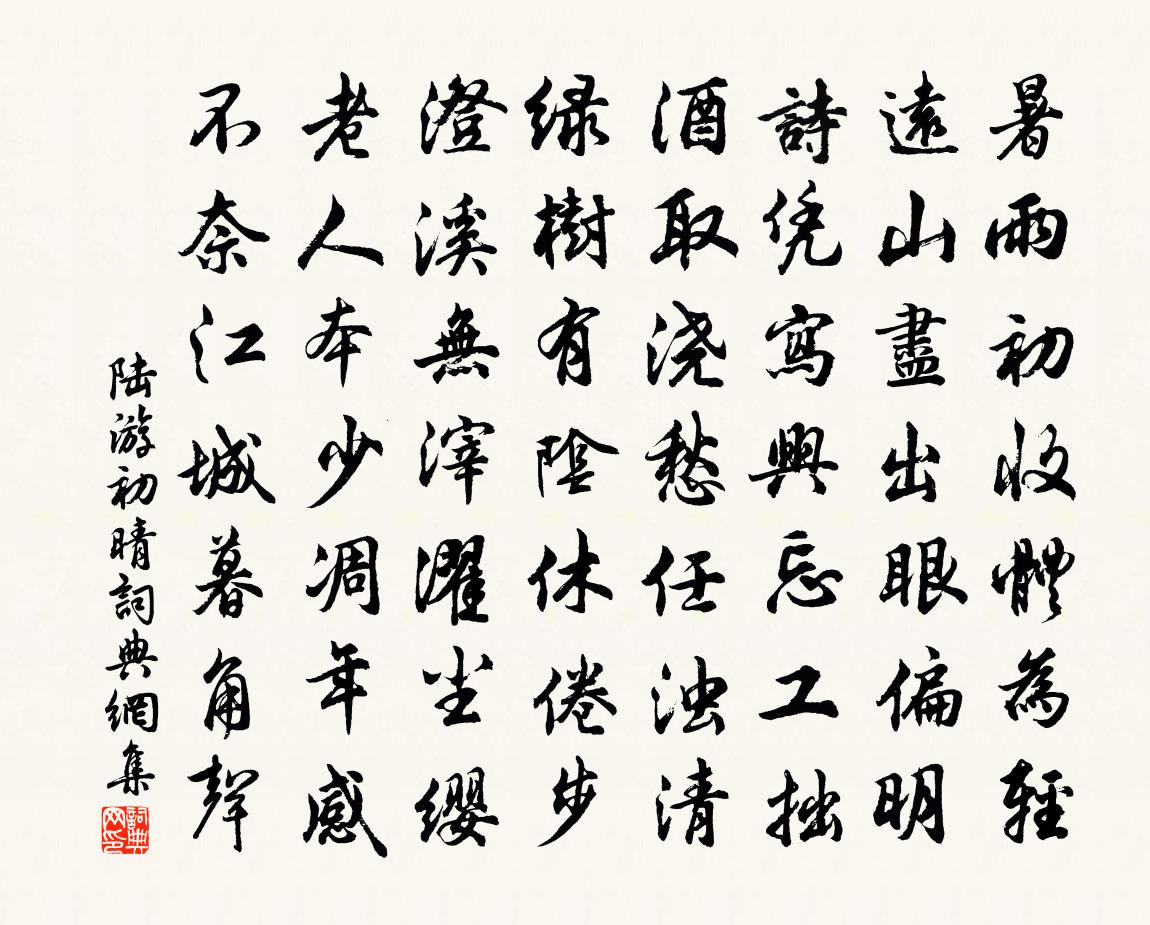 暑雨初收體為輕
遠山盡出眼偏明
詩凭寫興忘工拙
酒取浇愁任浊清
绿樹有陰休倦步
澄溪無滓濯尘缨
老人本少凋年感
不奈江城暮角聲
陆游初晴詞典網集
詞典网印